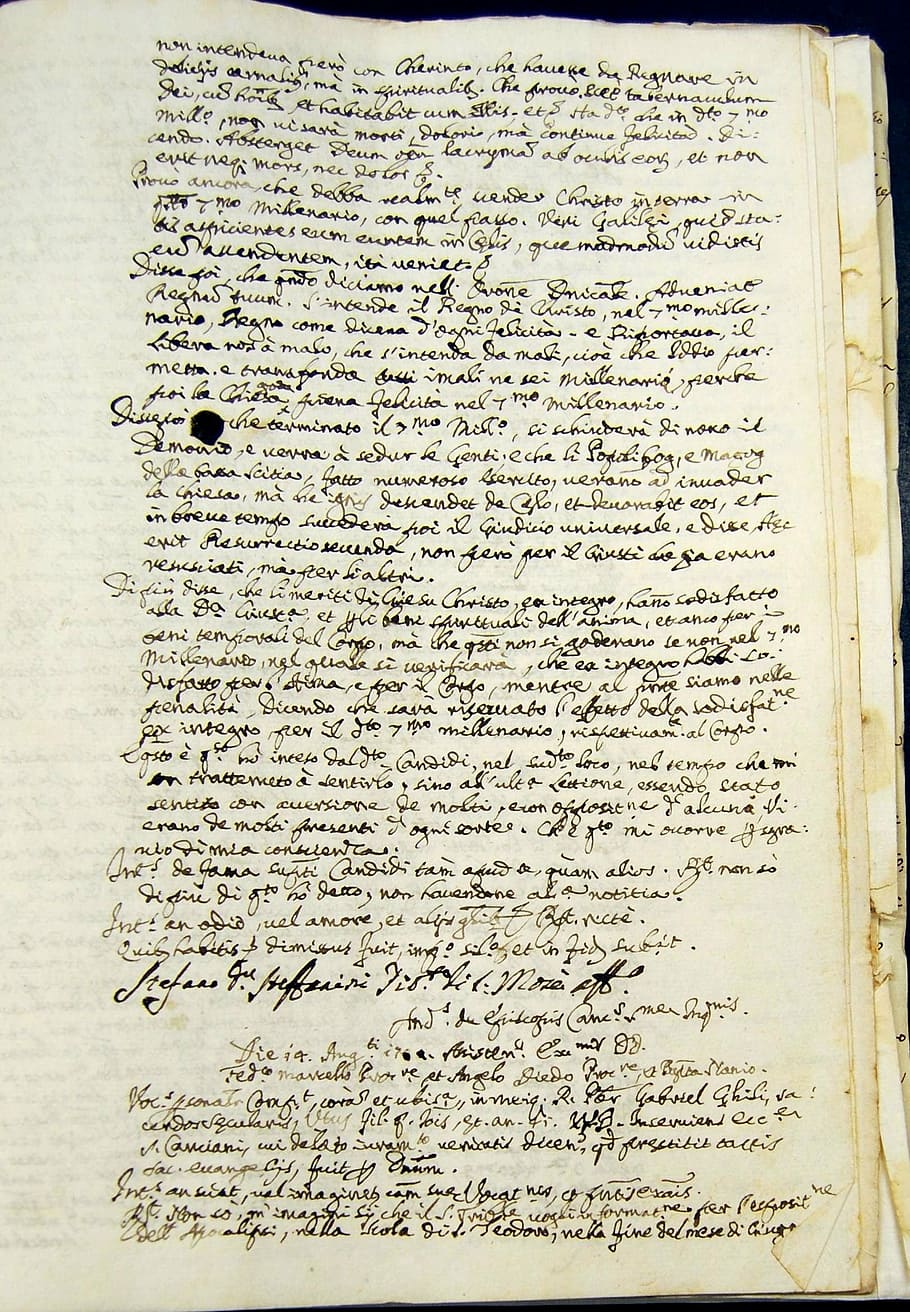 non intendeva però con Cherinto, che havesse da Regnare in
delitijs carnalibs, mà in spiritualibs. Che provò. Ecce tabernaculum
Dei, cū hoibs, et habitabit cum illis. et sta dto che in dto 7 mo
Millo, non vi sarà morti, dolorio, mà continue felicità. Di:
cendo. Absterget Deum oēm lacrymā ab oculis eorū, et non
erit neqs mors, nec dolor
Provò ancora, che debba realmte vender Christo in terra in
qsto 7 mo Millenario, con quel passo. Viri Galilei, quid sta:
tis aspicientes eum euntem in Celū, quemadmodū vidistis
eū ascendentem, ità veniet.
Disse poi, che qndo diciamo nell' Orone Dnicale. Adveniat
Regnū tuum. S'intende il Regno di Christo, nel 7 mo mille:
nario, Regno come diceva d'ogni felicità. e Riportava, il
Libera nos à malo, che s'intenda da mali, cioè che Iddio per:
metta. e transfonda tutti i mali ne sei Millenarij, perche
poi la Chiesa goda piena felicità nel 7 mo Millenario.
Disse poi che terminato il 7 mo Millo, si schiuderà di novo il
Demonio, e verrà à sedur le Genti. e che li Popoli Gog, e Magog
della bassa Scitia, fatto numeroso esercito, verano ad invader
la Chiesa, mà che ignis descendet de Celo, et devorabit eos, et
in breve tempo succederà poi il Giudicio universale, e disse, Hec
erit Resurrectio secunda, non però per il Giusti che già erano
resusciati, mà per li altri.
Di più disse, che li meriti di Giesu Christo, ex integro, hano sodisfatto
alla Da Giusta, et p li beni spirituali dell'anima, et anco per i
beni temporali del Corpo, mà che qsti non si goderano se non nel 7 mo
Millenario, nel quale si verificarà, che ex integro habbi so:
disfatto per l'Anima, e per il Corpo, mentre al pnte siamo nelle
penalità, dicendo che sarà riservato l'effetto della sodisfatne
ex integro, per il dto 7 mo millenario, rispettivame al Corpo.
E qsto è qto hò inteso dal dto Candidi, nel sudto loco, nel tempo che mi
son trattenuto à sentirlo, sino all'ulta Lettione, essendo stato
sentito con aversione de molti, e con oppositne d'alcuni. Vi
erano de molti presenti d'ogni sorte. Ch'è qto mi ocorre p sgra:
vio di mia conscienza.
Ints de fama supti Candidi tàm apud se, quàm alios. Rt. non sò
di più di qto hò detto, non havendone ala notitia.
Ints an odio, vel amore, et alijs glibs Rt. rectè.
Quibs habitis dimissus fuit, impo silo et in fid subst.
Stefano Du Steffanini
Ands de Episcopis Cancs
Die 14. Augti Assistens DD.
Fedco Marcello Procre, et Angelo Diedo Procre, et Bta Nanio.
Vocs psonalr Compt, corā et ubi sa, in meiq. R. Pter Gabriel Ghisi, sa:
cerdos secularis, Vtus fil. q. Inserviens
S. Canciani, cui delato iuramto veritatis dicen, qd prestitit tactis
sac. evangelijs, fuit p Dnum.
Ints an sciat, vel imaginet cam sue Vocatnis, et pntis exais.
Rt. Non sò, m'imagini sij che il S. Trible vogli informatne per l'espositne
dell'Apocalipsi, nella Scola di S. Teodoro, nella fine del mese di Giugo